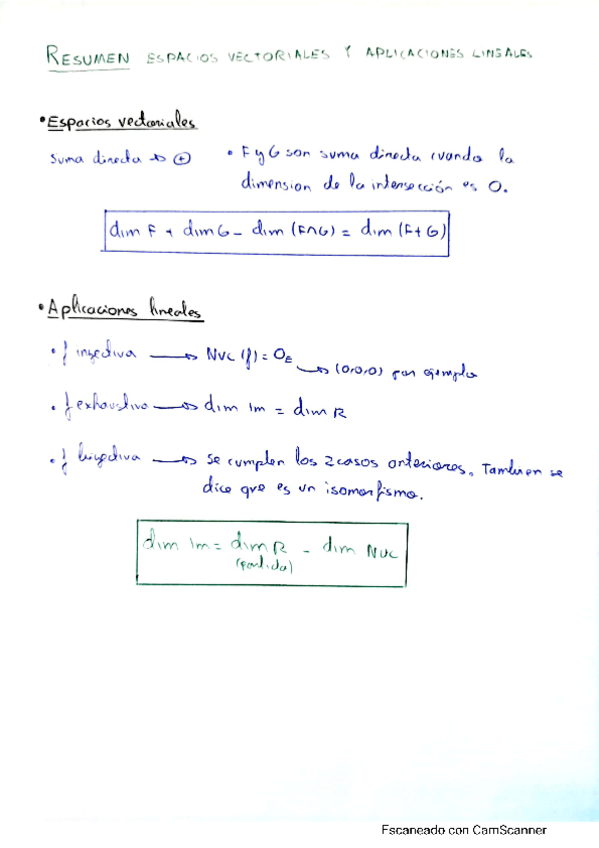 RESUMEN ESPACIOS VECTORIALES Y APLICACIONES LINEALES
• Espacios vectoriales
Suma directa → ⊕
• F y G son suma directa cuando la
dimension de la intersección es 0.
dim F + dim G - dim (F∩G) = dim (F+G)
• Aplicaciones lineales
• f inyectiva → Nuc (f) = 0E
→ (0,0,0) por ejemplo
• f exhaustiva → dim Im = dim R
• f biyectiva → se cumplen los 2 casos anteriores. Tambien se
dice que es un isomorfismo.
dim Im = dim R - dim Nuc
(partida)
Escaneado con CamScanner